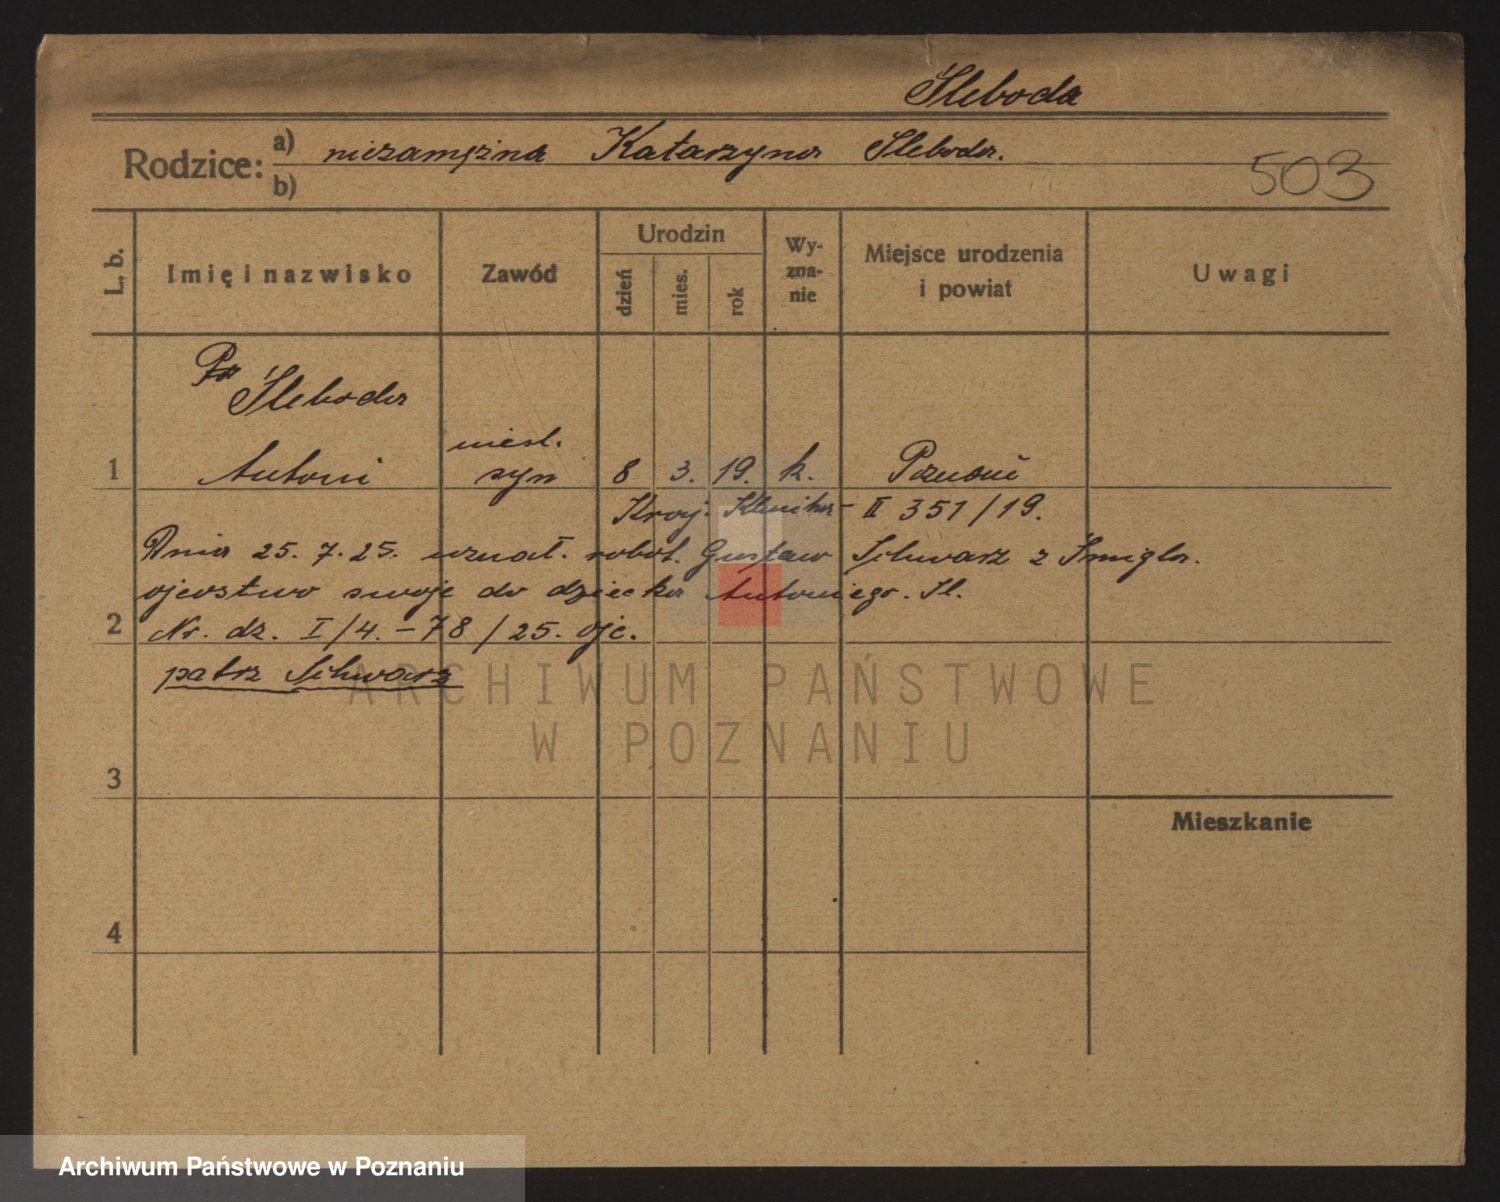 Śleboda
Rodzice: a) niezamężna Katarzyna Śleboda.
b)
503
L. b.
Imię i nazwisko
Zawód
Urodzin
dzień
mies.
rok
Wy-
zna-
nie
Miejsce urodzenia
i powiat
Uwagi
Śleboda
1 Antoni
nieśl.
syn
8 3. 19. k. Poznań
Kraj. Klinika – II 351/19.
Dnia 25. 7. 25. uznał. robot. Gustaw Schwarz z Śmigla.
ojcostwo swoje do dziecka Antoniego. Śl.
2 Nr. dz. I/4. – 78/25. ojc.
patrz Schwarz
ARCHIWUM PAŃSTWOWE
W POZNANIU
3
Mieszkanie
4
Archiwum Państwowe w Poznaniu